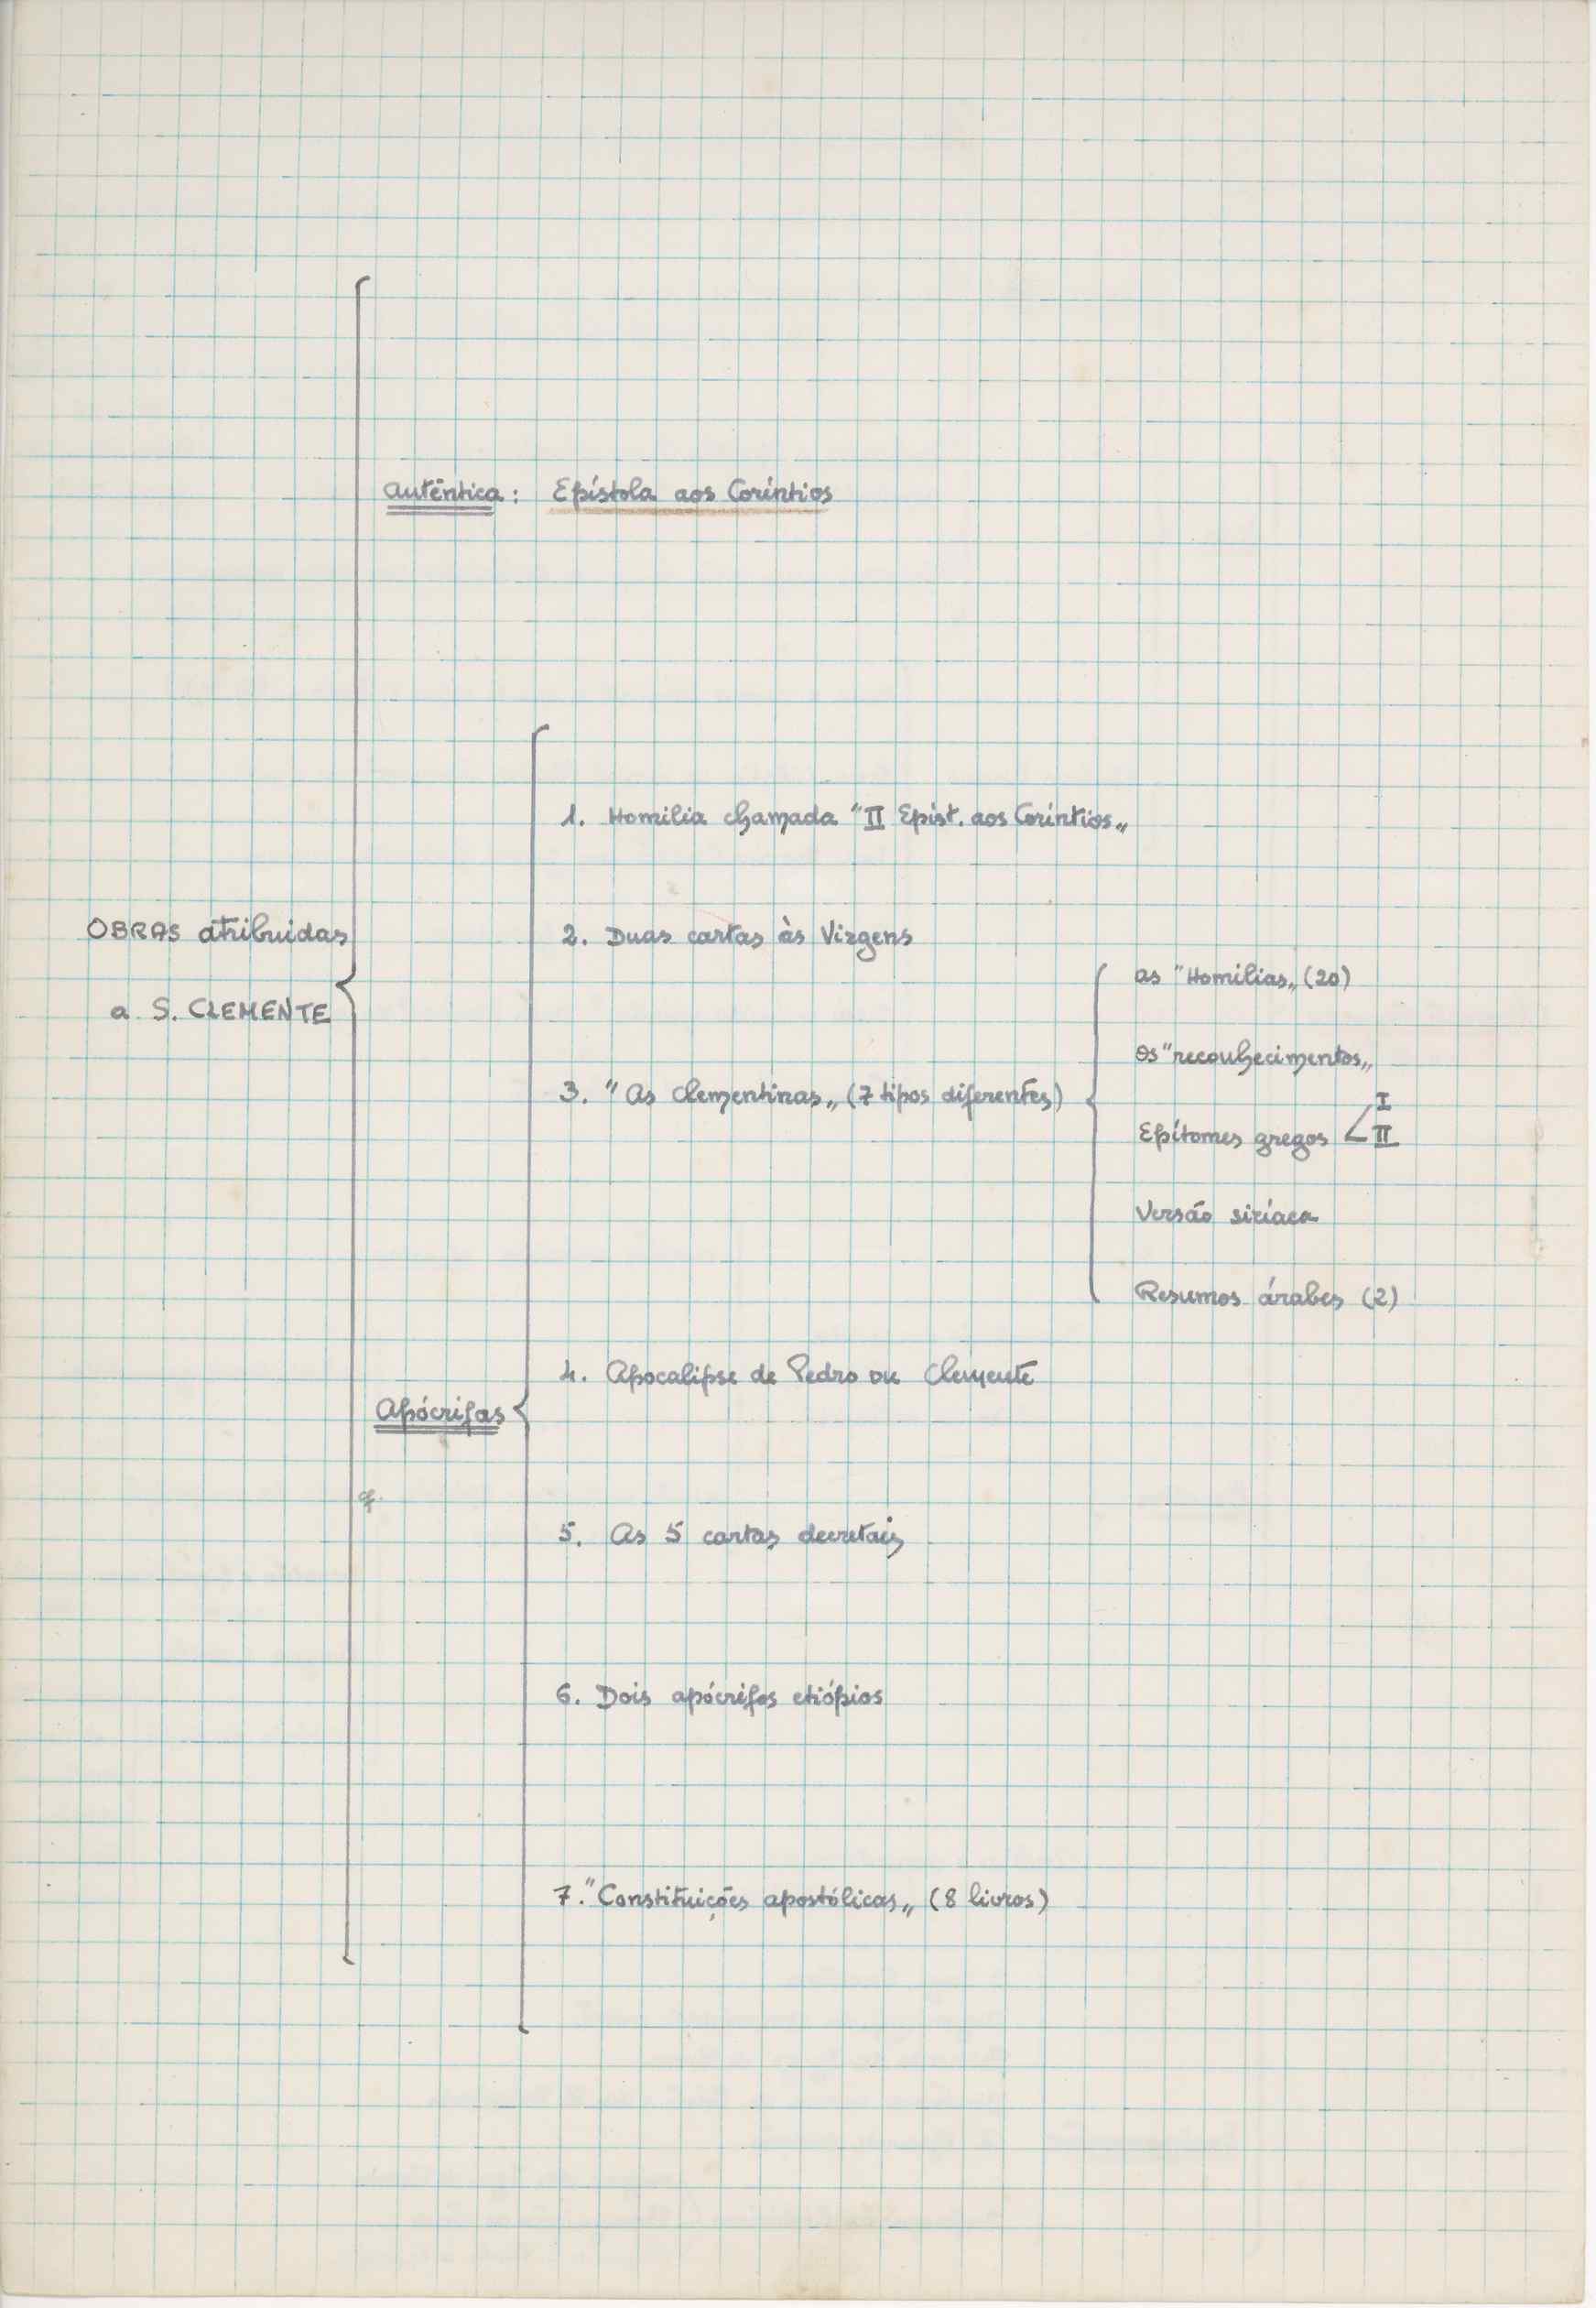 Autêntica: Epístola aos Coríntios
1. Homilia chamada "II Epist. aos Coríntios„
OBRAS atribuidas
a S. CLEMENTE
2. Duas cartas às Virgens
3. "As Clementinas„ (7 tipos diferentes)
as "Homilias„ (20)
os "reconhecimentos„
Epítomes gregos I
II
Versão siríaca
Resumos árabes (2)
Apócrifas
4. Apocalipse de Pedro ou Clemente
5. As 5 cartas decretais
6. Dois apócrifos etiópios
7. "Constituições apostólicas„ (8 livros)